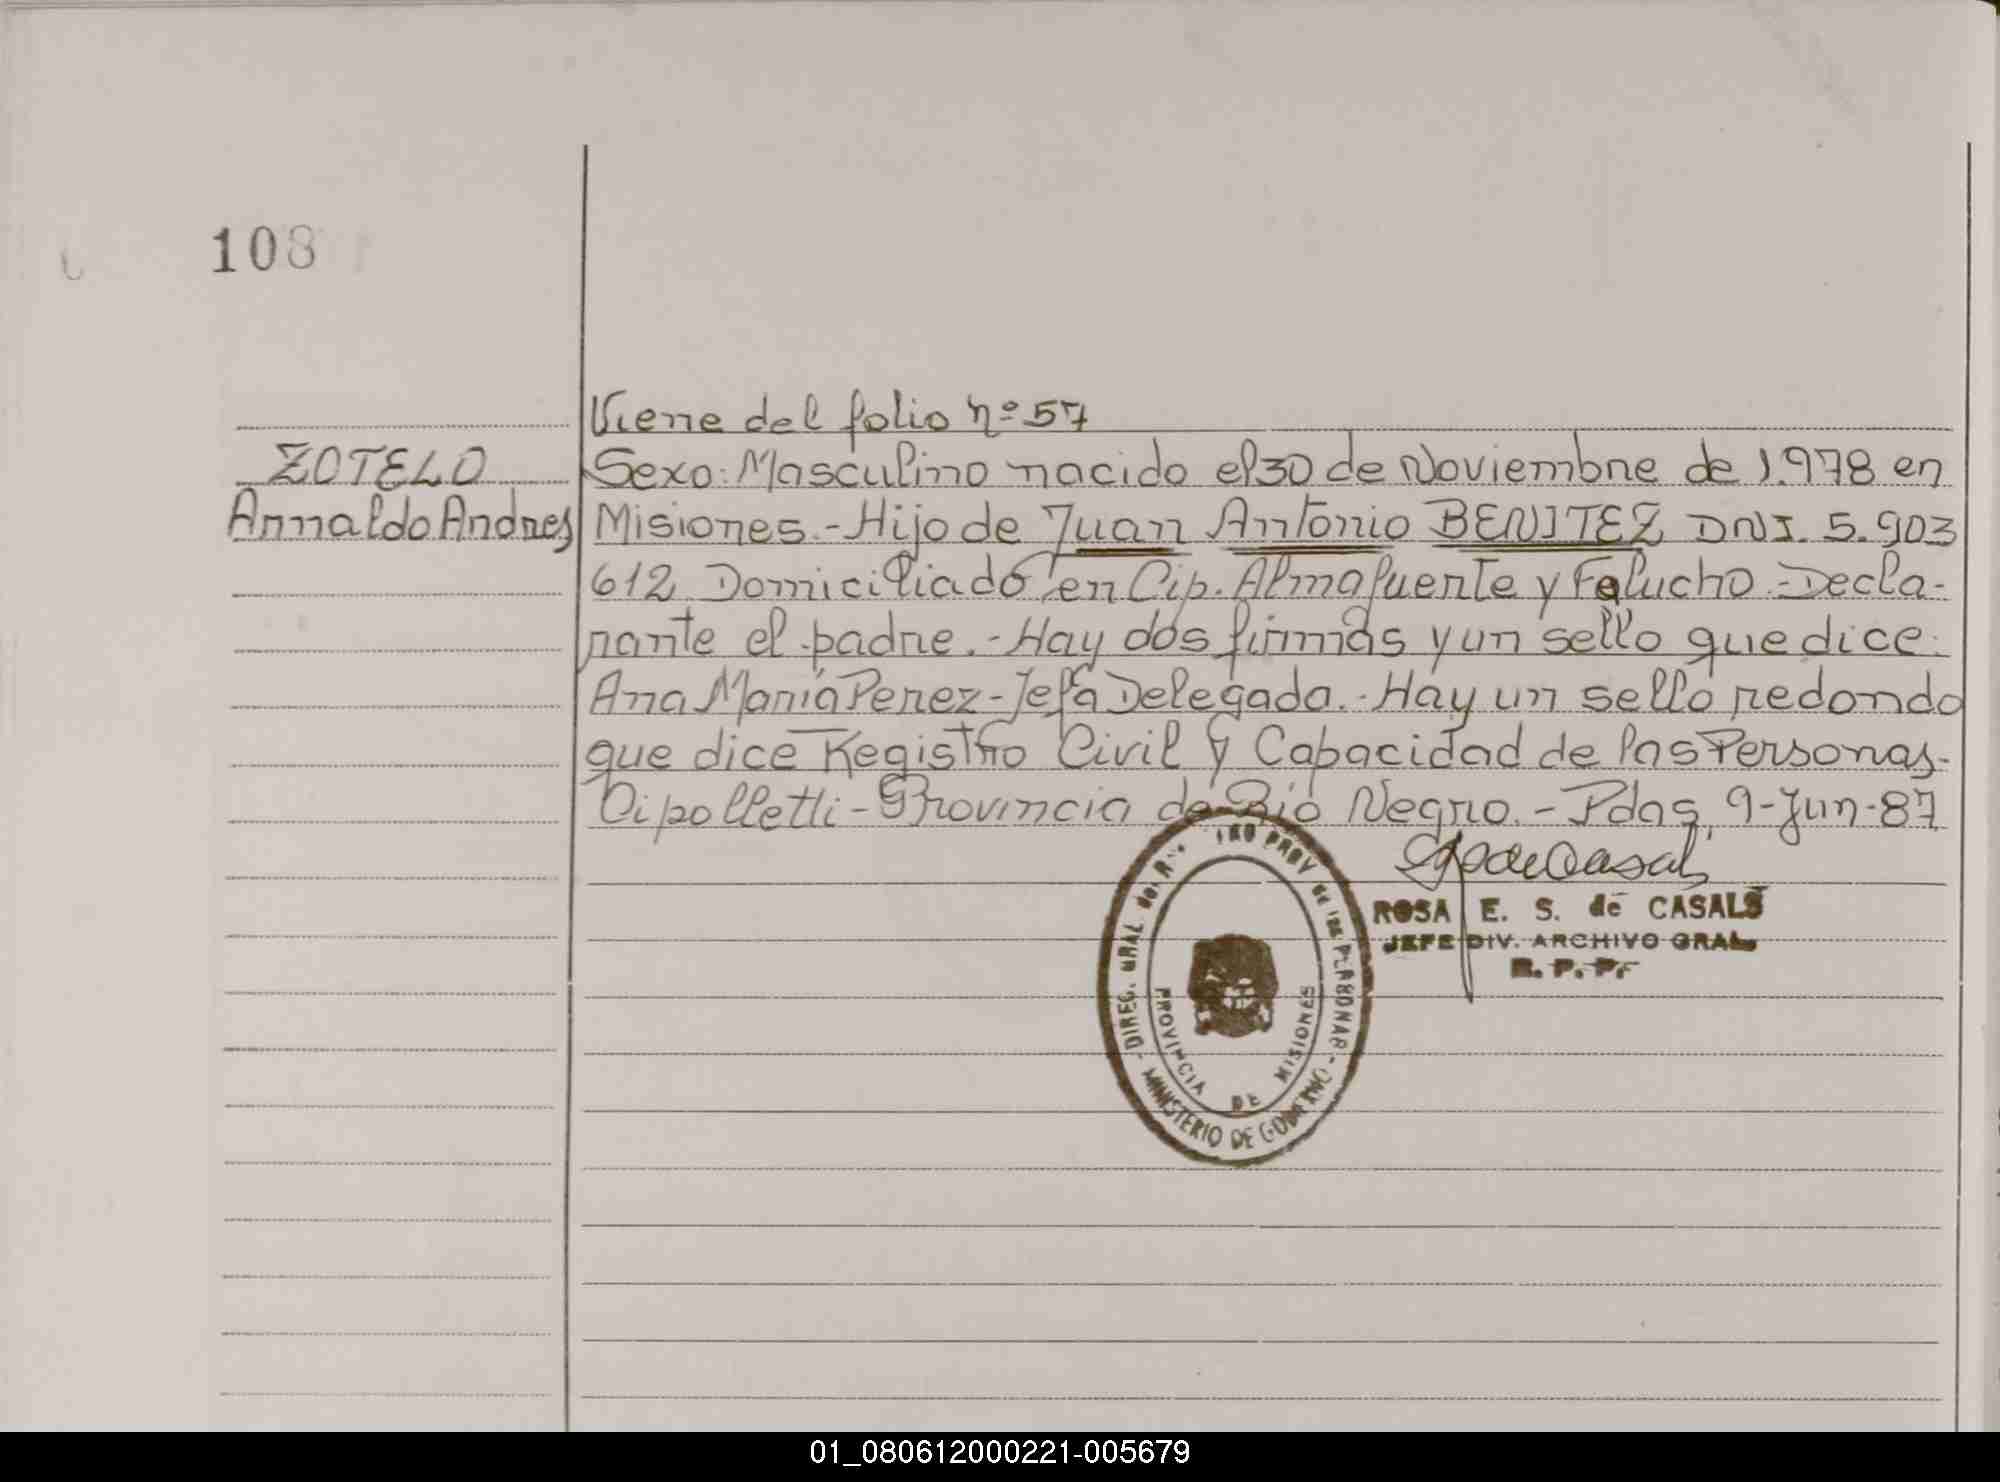 108
Viene del folio nº 57
ZOTELO
Arnaldo Andres
Sexo: Masculino nacido el 30 de Noviembre de 1.978 en
Misiones.- Hijo de Juan Antonio BENITEZ DNI. 5.903
612 Domiciliado en Cip. Almafuerte y Falucho.- Decla-
rante el padre.- Hay dos firmas y un sello que dice:
Ana María Perez - Jefa Delegada.- Hay un sello redondo
que dice Registro Civil y Capacidad de las Personas-
Cipolletti - Provincia de Río Negro.- Pdas, 9-Jun-87
ROSA E. S. de CASALS
JEFE DIV. ARCHIVO GRAL.
R. P. P.
DIREC. GRAL. del PROV de las PERSONAS
MINISTERIO DE GOBIERNO
PROVINCIA DE MISIONES
01_080612000221-005679